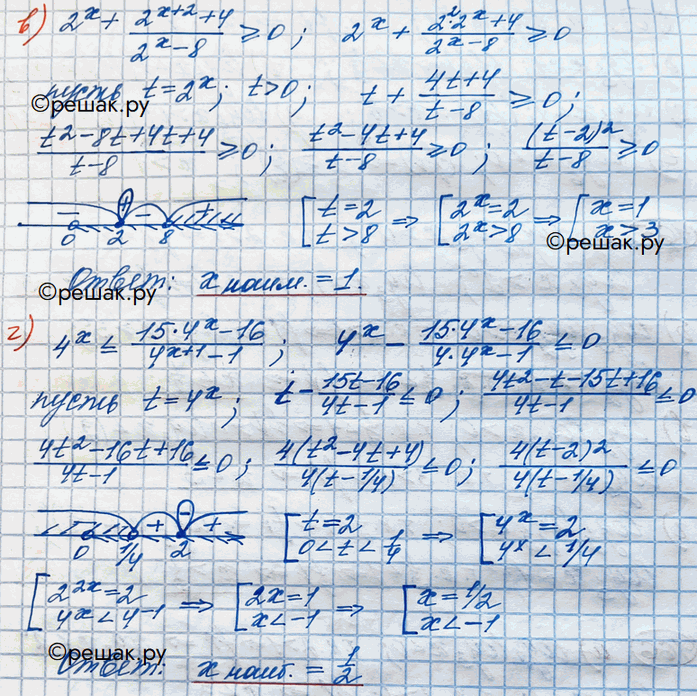 в) 2^x + (2^(x+2) + 4)/(2^x - 8) ≥ 0; 2^x + (2^2·2^x + 4)/(2^x - 8) ≥ 0
пусть t = 2^x; t > 0; t + (4t + 4)/(t - 8) ≥ 0;
©решак.ру
(t^2 - 8t + 4t + 4)/(t - 8) ≥ 0; (t^2 - 4t + 4)/(t - 8) ≥ 0; (t - 2)^2/(t - 8) ≥ 0
- + - +
0 2 8
[t = 2 t > 8 ⇒ [2^x = 2 2^x > 8 ⇒ [x = 1 x > 3
©решак.ру
Ответ: x наим. = 1.
©решак.ру
г) 4^x ≤ (15·4^x - 16)/(4^(x+1) - 1); 4^x - (15·4^x - 16)/(4·4^x - 1) ≤ 0
пусть t = 4^x; t - (15t - 16)/(4t - 1) ≤ 0; (4t^2 - t - 15t + 16)/(4t - 1) ≤ 0
(4t^2 - 16t + 16)/(4t - 1) ≤ 0; 4(t^2 - 4t + 4)/4(t - 1/4) ≤ 0; 4(t - 2)^2/4(t - 1/4) ≤ 0
+ - +
0 1/4 2
[t = 2 0 < t < 1/4 ⇒ [4^x = 2 4^x < 1/4
[2^2x = 2 4^x < 4^-1 ⇒ [2x = 1 x < -1 ⇒ [x = 1/2 x < -1
©решак.ру
Ответ: x наиб. = 1/2